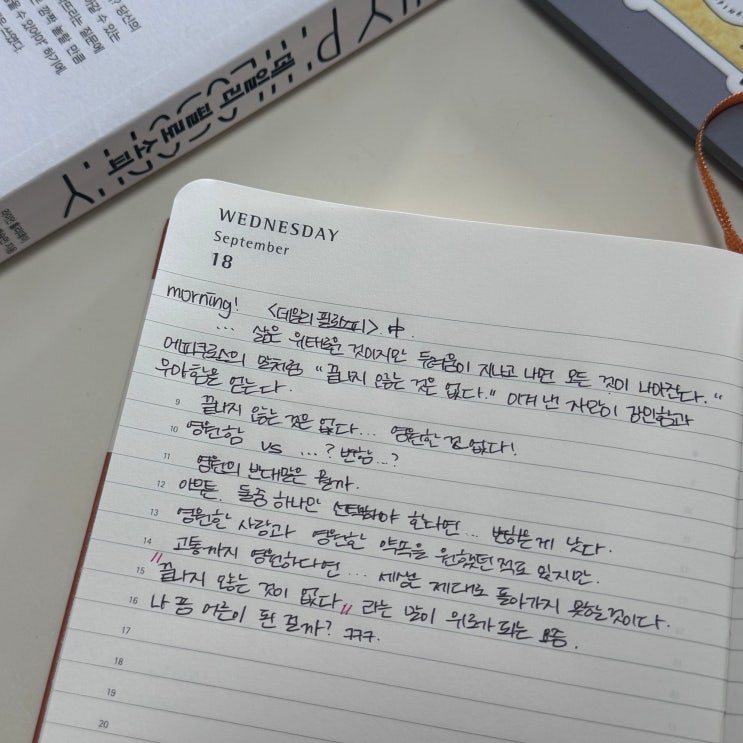 당신의
데일리 필로소피
WEDNESDAY
September
18
morning! <데일리 필로소피> 中.
... 삶은 위태로운 것이지만 두려움이 지나고 나면 모든 것이 나아진다."
에피쿠로스의 말처럼 "끝나지 않는 것은 없다." 이겨 낸 자만이 강인함과
우아함을 얻는다.
9 끝나지 않는 것은 없다... 영원한 건 없다!
10 영원함 vs ...? 변함...?
11 영원의 반대말은 뭘까.
12 아무튼, 둘중 하나만 선택해야 한다면... 변하는게 낫다.
13 영원한 사랑과 영원한 약속을 원했던 적도 있지만.
14 고통까지 영원하다면... 세상은 제대로 돌아가지 못할것이다.
15 "끝나지 않는 것이 없다" 라는 말이 위로가 되는 요즘.
16 나 좀 어른이 된 걸까? ㅋㅋㅋ.
17
18
19
20